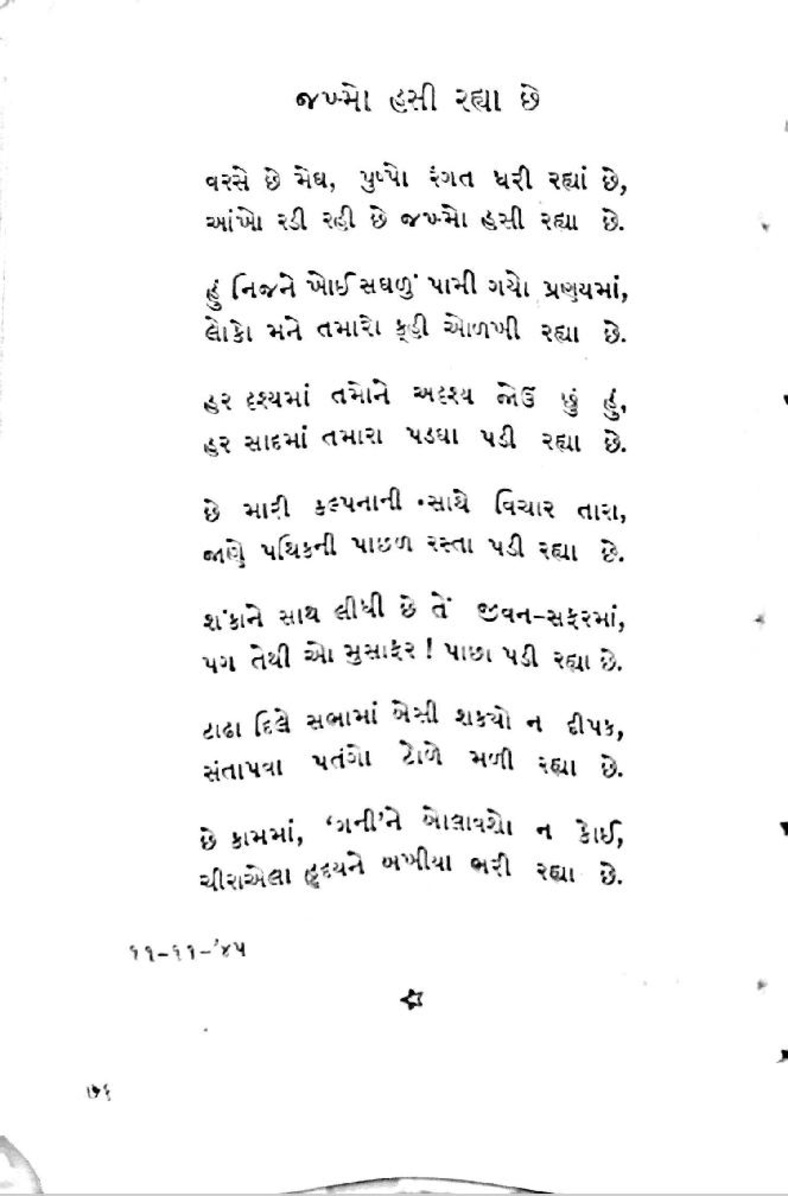 જખ્મો હસી રહ્યા છે
વરસે છે મેઘ, પુષ્પો રંગત ધરી રહ્યાં છે,
આંખો રડી રહી છે જખ્મો હસી રહ્યા છે.
હું નિજને ખોઈ સઘળું પામી ગયો પ્રણયમાં,
લોકો મને તમારો કહી ઓળખી રહ્યા છે.
હર દૃશ્યમાં તમોને અદૃશ્ય જોઉં છું હું,
હર સાદમાં તમારા પડઘા પડી રહ્યા છે.
છે મારી કલ્પનાની સાથે વિચાર તારા,
જાણે પથિકની પાછળ રસ્તા પડી રહ્યા છે.
શંકાને સાથ લીધી છે તેં જીવન-સફરમાં,
પગ તેથી ઓ મુસાફર ! પાછા પડી રહ્યા છે.
ટાઢા દિલે સભામાં બેસી શકયો ન દીપક,
સંતાપવા પતંગો ટોળે મળી રહ્યા છે.
છે કામમાં, ‘ગની’ને બોલાવશો ન કોઈ,
ચીરાએલા હૃદયને બખીયા ભરી રહ્યા છે.
૧૧-૧૧-’૪૫
૭૬